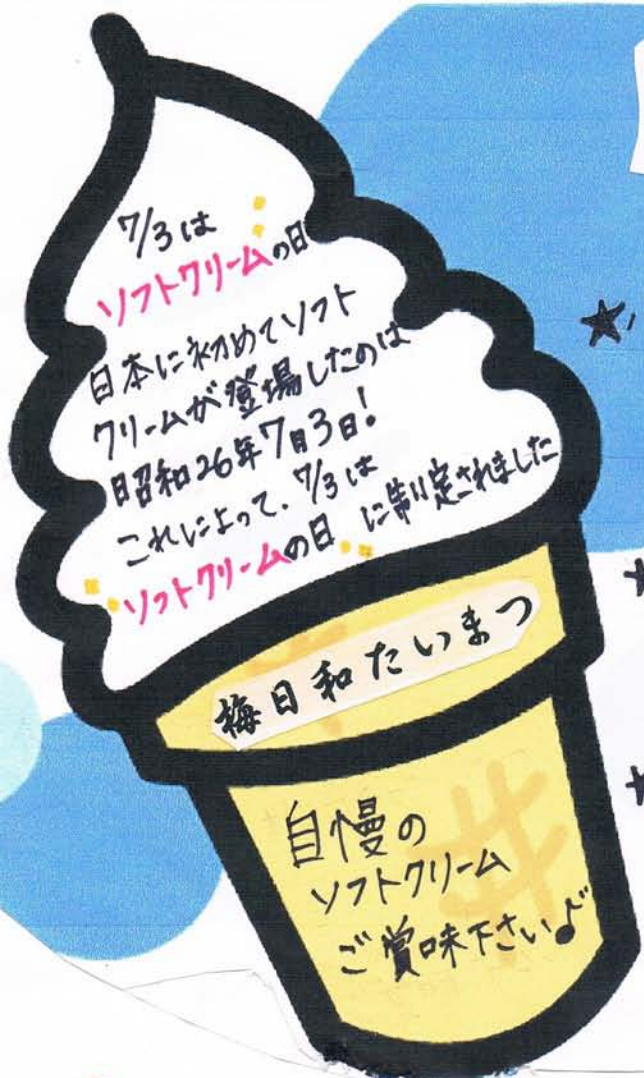 7/3は
ソフトクリームの日
日本に初めてソフト
クリームが登場したのは
昭和26年7月3日!
これによって、7/3は
ソフトクリームの日 に制定されました
梅日和たいまつ
自慢の
ソフトクリーム
ご賞味下さい♪